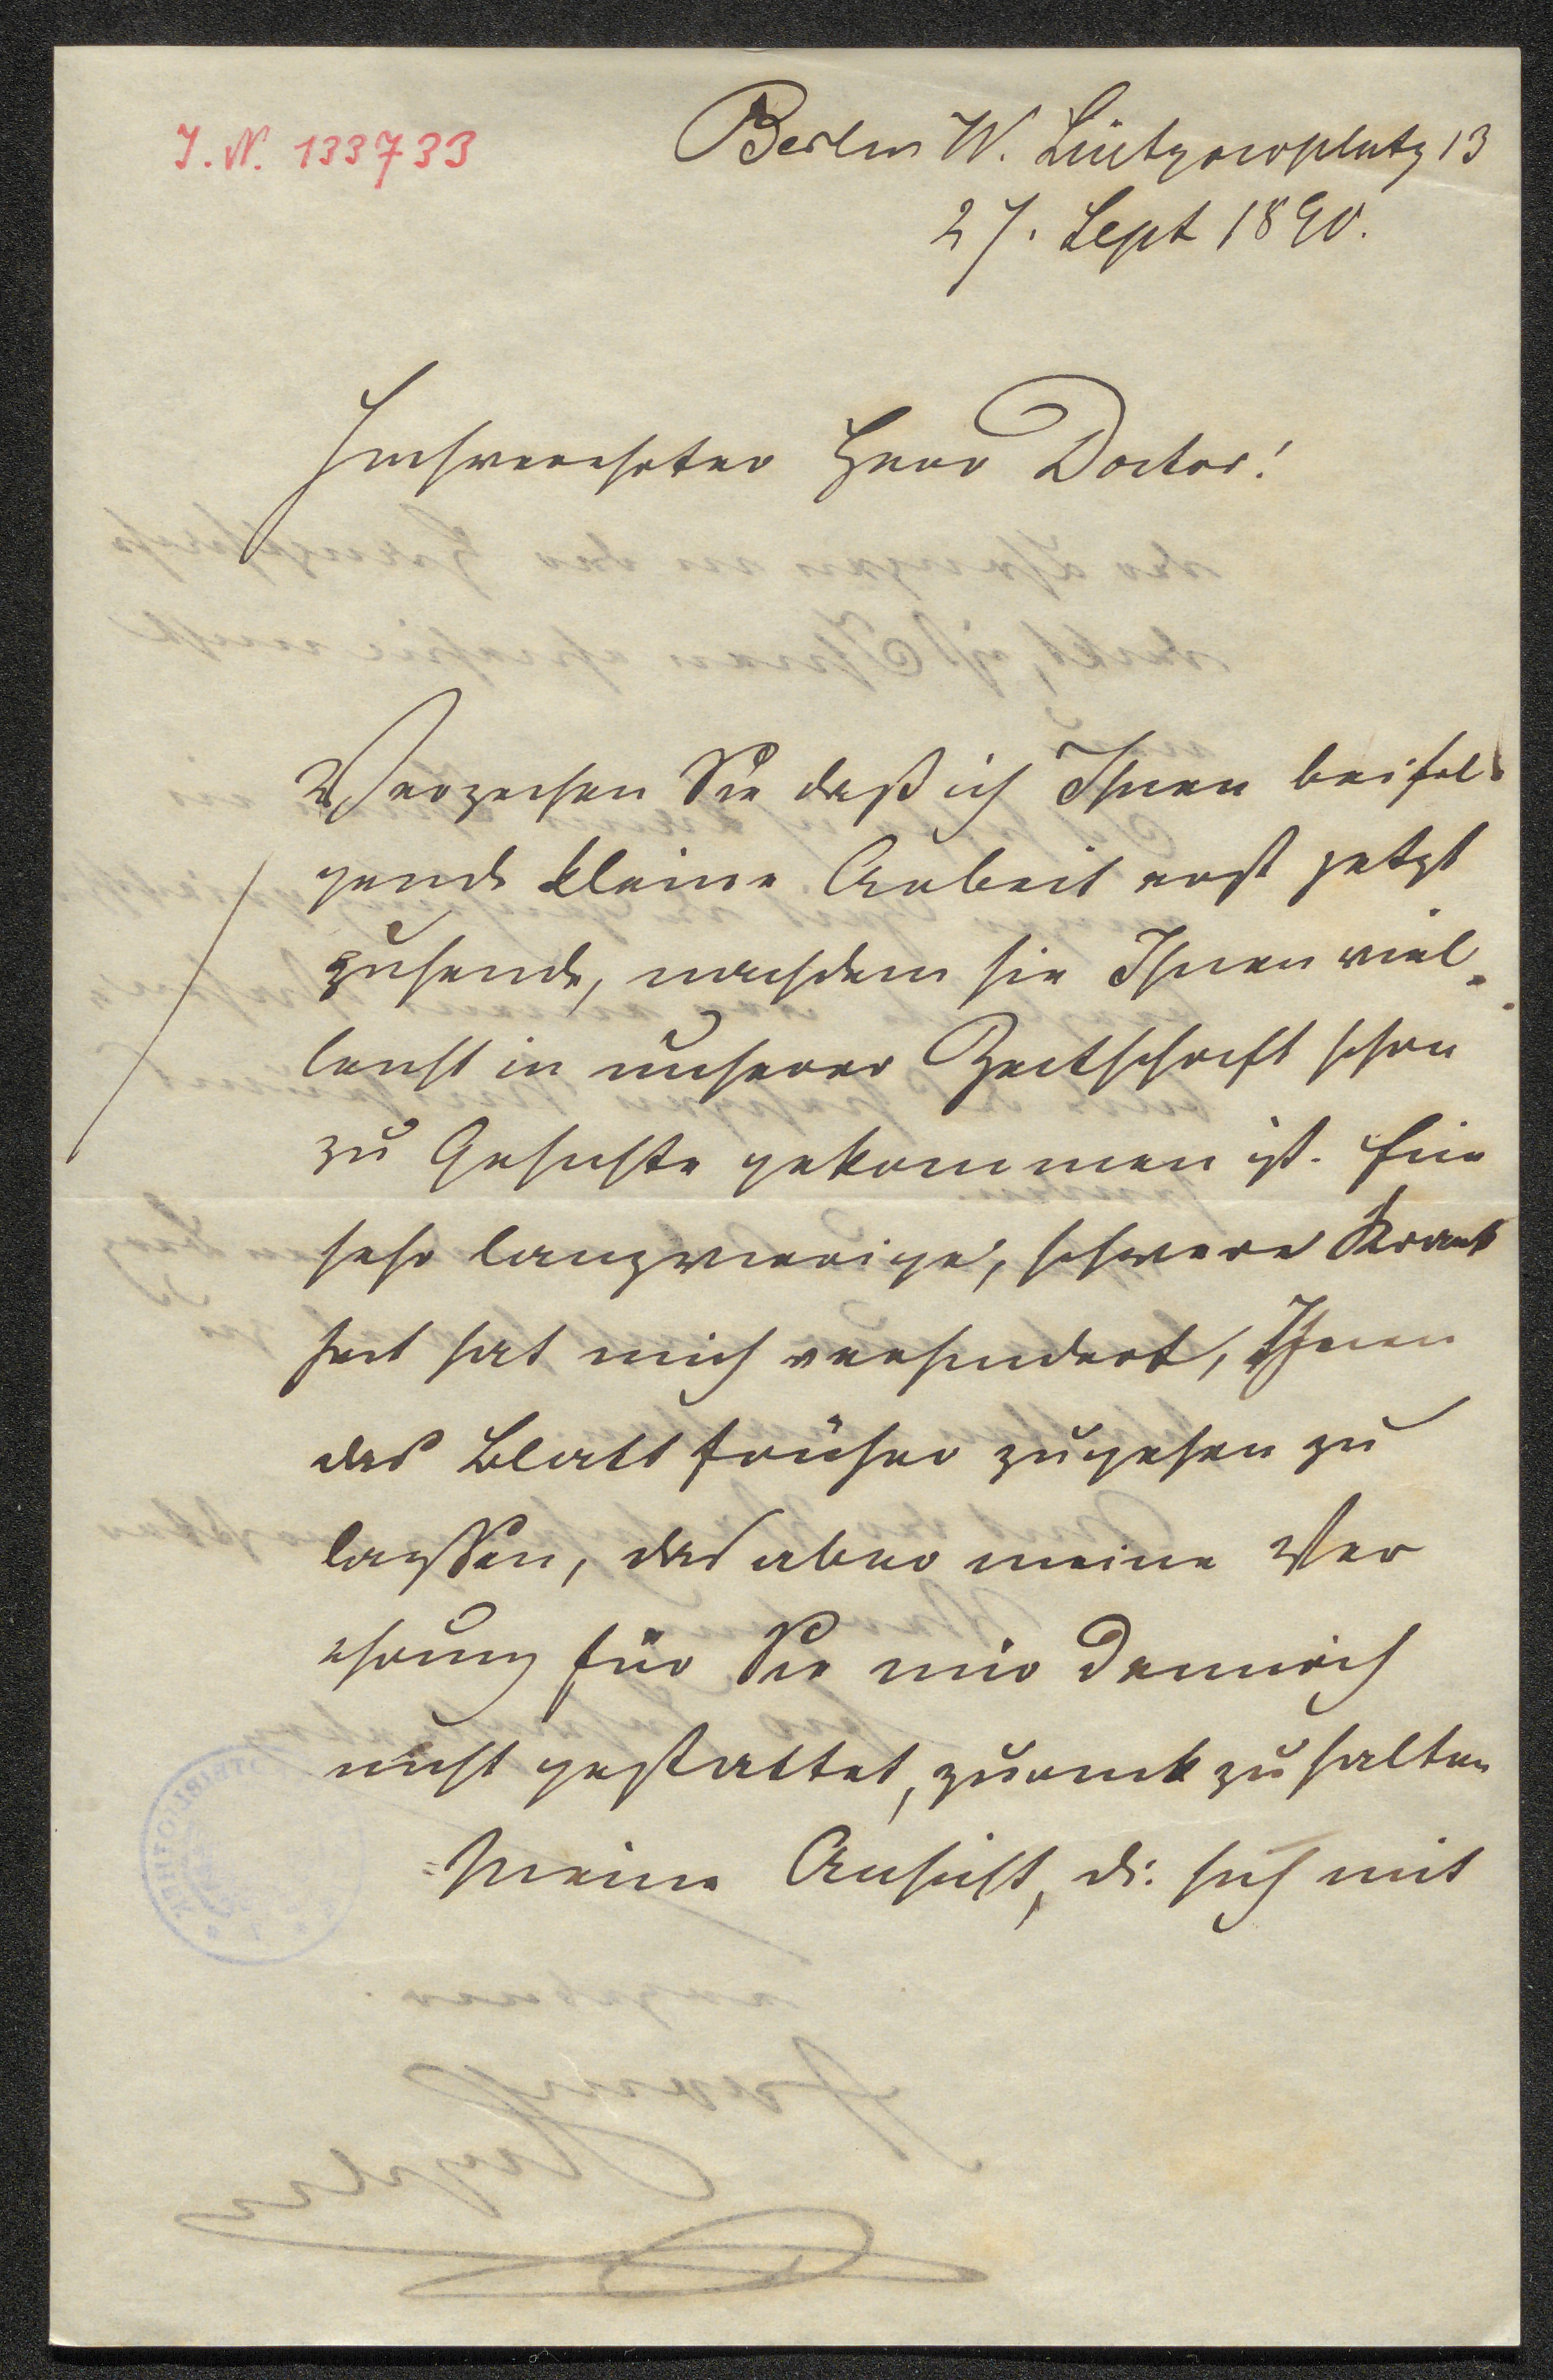 J. N. 133733
Berlin W. Lützowplatz 13
27. Sept 1890.
Hochverehrter Herr Doctor!
Verzeihen Sie daß ich Ihnen beifol-
gende kleine Arbeit erst jetzt
zusende, nachdem sie Ihnen viel-
leicht in unserer Zeitschrift schon
zu Gesichte gekommen ist. Eine
sehr langwierige, schwere Krank
heit hat mich verhindert, Ihnen
das Blatt früher zugehen zu
lassen, das aber meine Ver
ehrung für Sie mir dennoch
nicht gestattet, zurückzuhalten
Meine Ansicht, di: sich mit